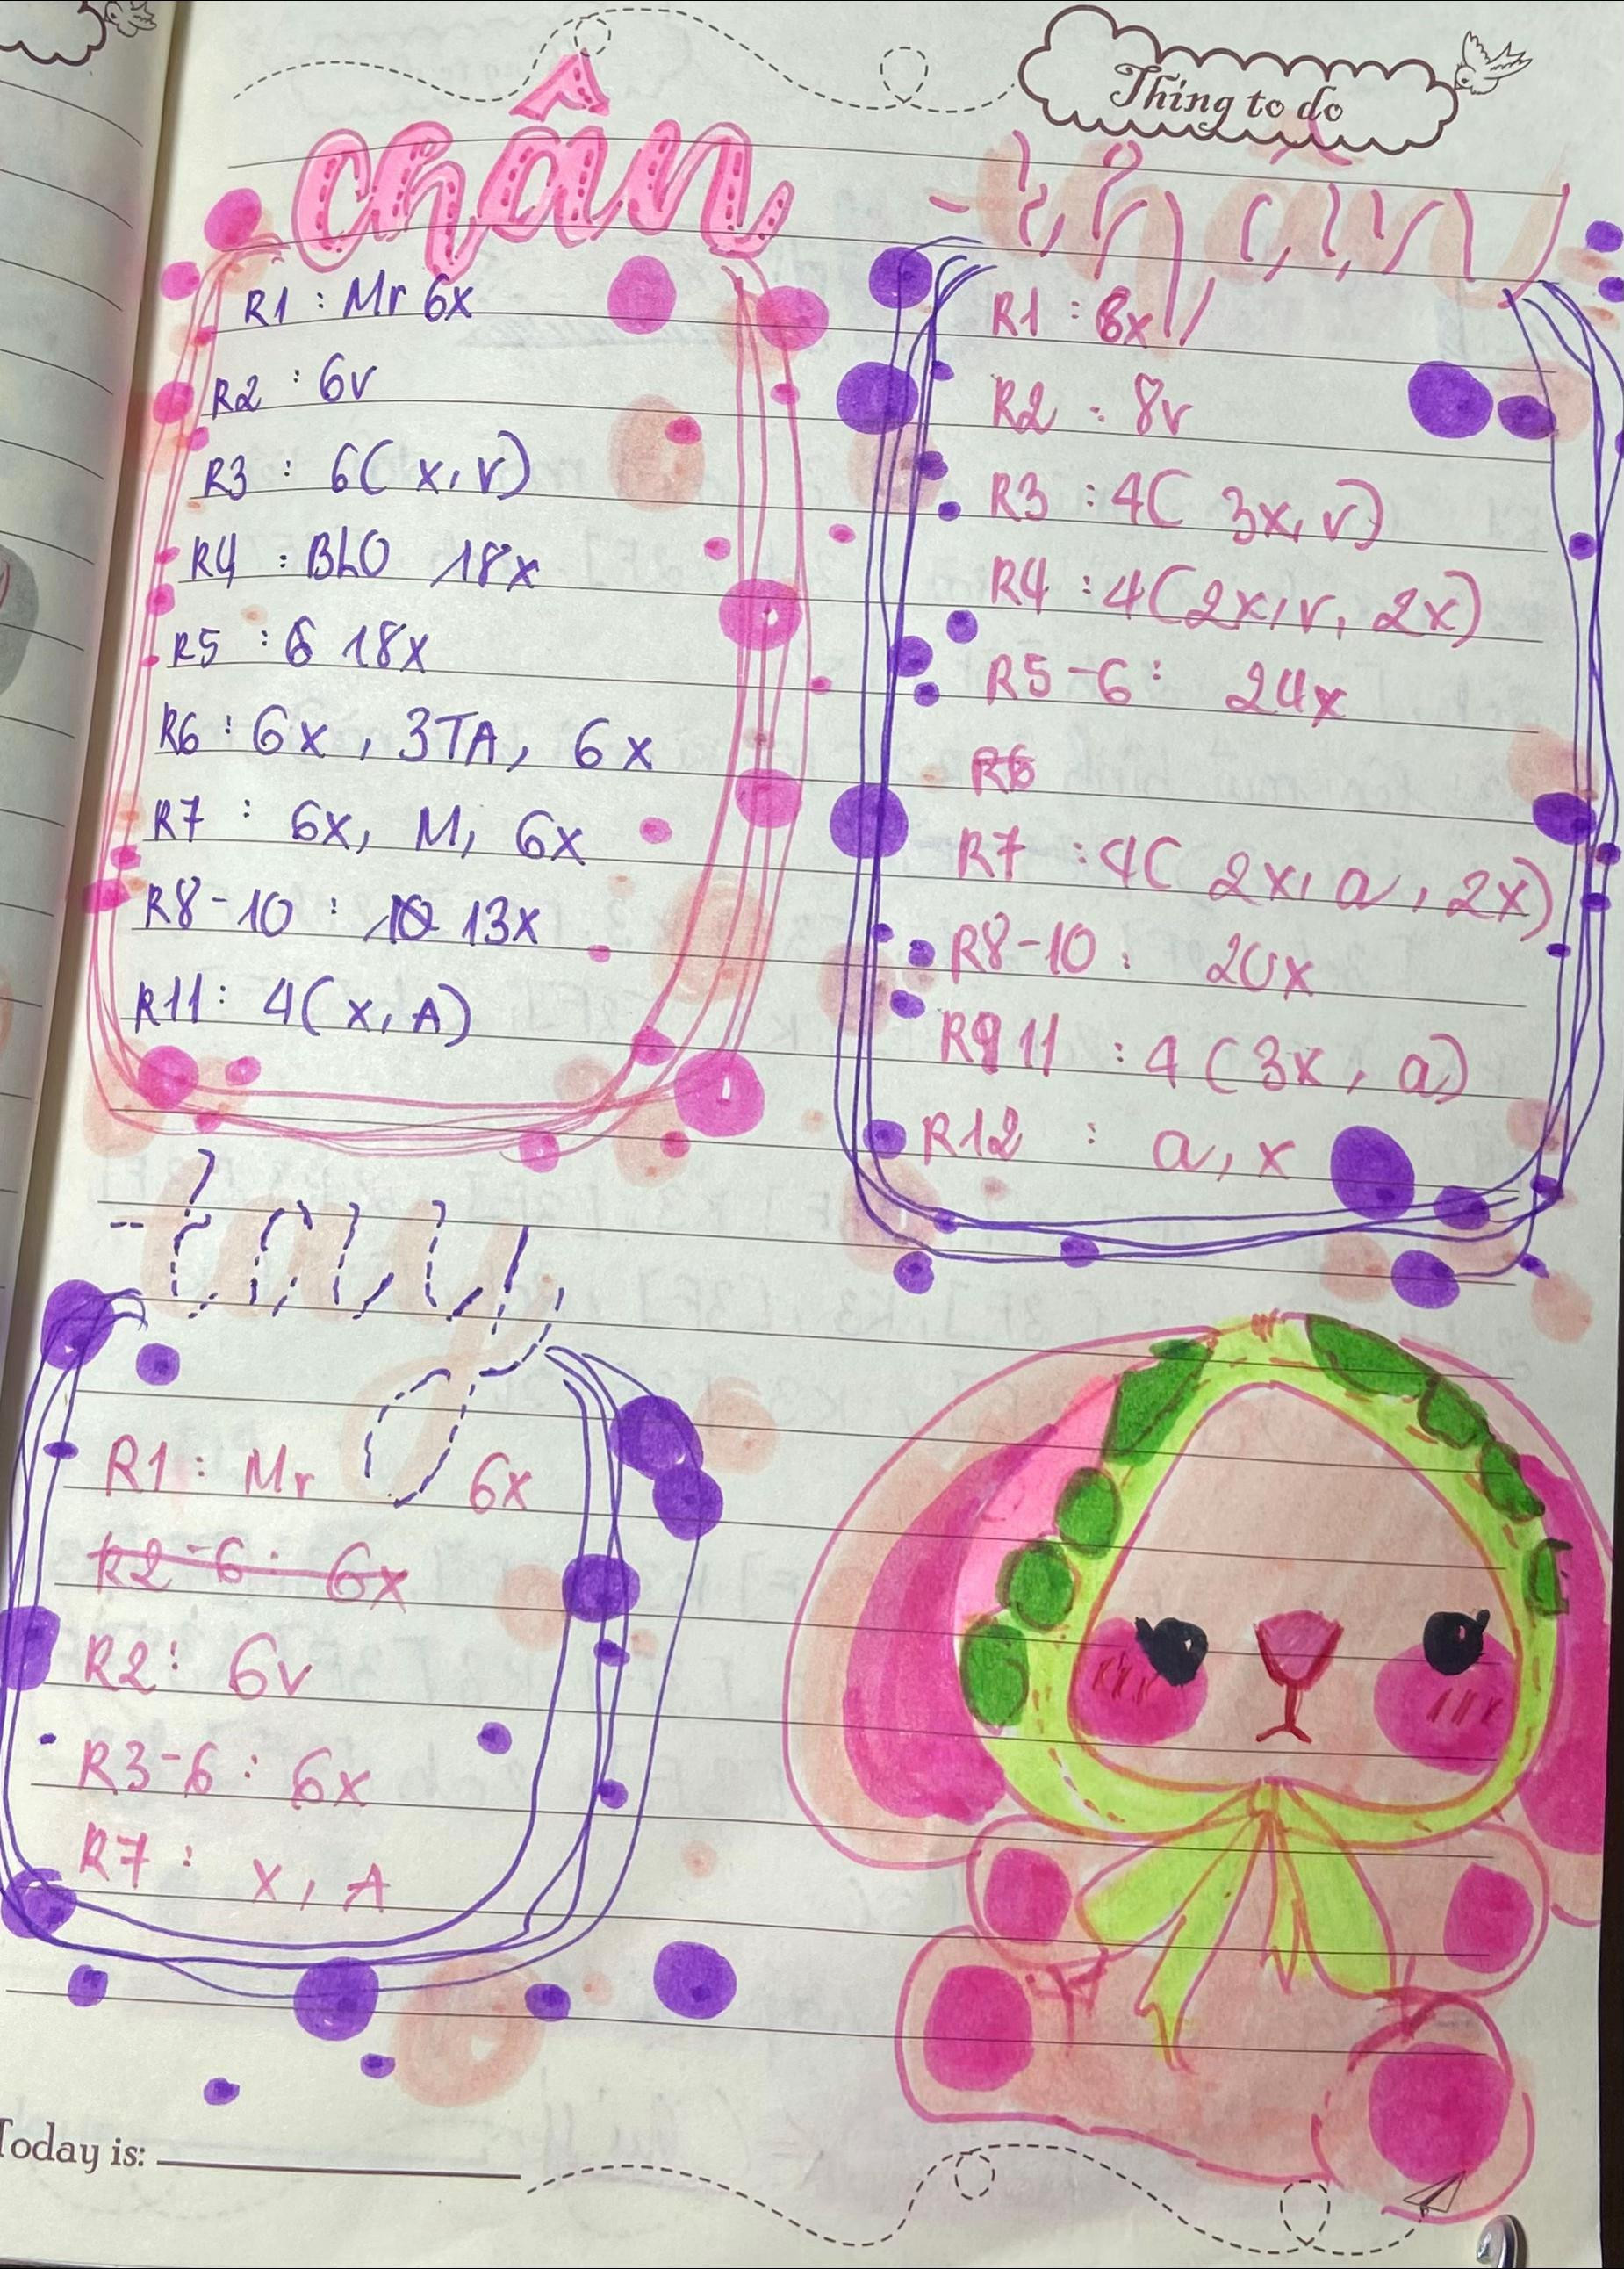 Thing to do
chân
R1 : Mr 6x
R2 : 6v
R3 : 6( x, v)
R4 : BLO 18x
R5 : 6 18x
R6 : 6x , 3TA, 6x
R7 : 6x, M, 6x
R8-10 : 10 13x
R11: 4( x, A)
- thân
R1 : 8x
R2 : 8v
R3 : 4( 3x, v)
R4 : 4(2x, v, 2x)
R5-6 : 24x
R6
R7 : 4( 2x, a, 2x)
R8-10 : 20x
R9 11 : 4 (3x, a)
R12 : a, x
- tay
R1 : Mr 6x
R2-6 : 6x
R2 : 6v
R3-6 : 6x
R7 : x, A
Today is: